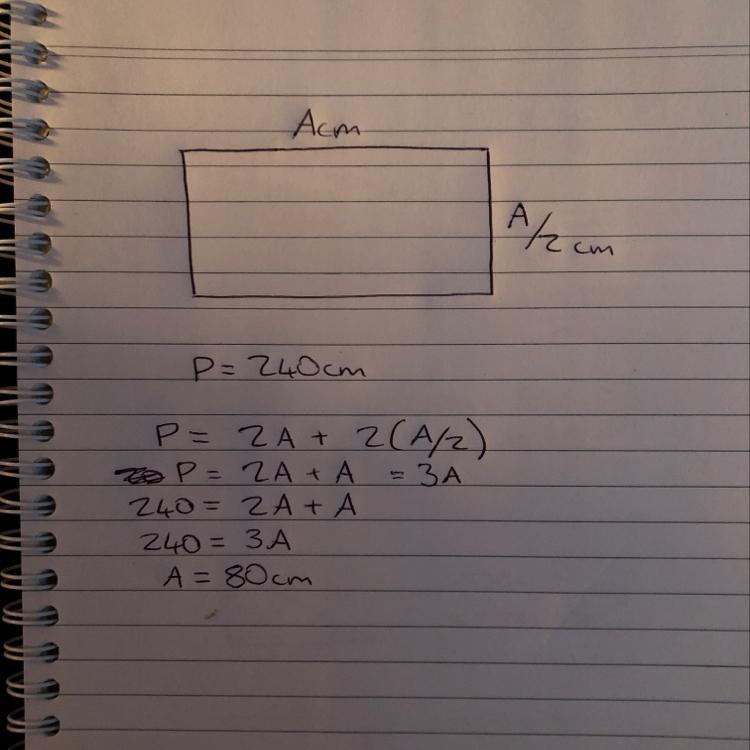 Acm
A/2 cm
P = 240cm
P = 2A + 2(A/2)
P = 2A + A = 3A
240 = 2A + A
240 = 3A
A = 80cm